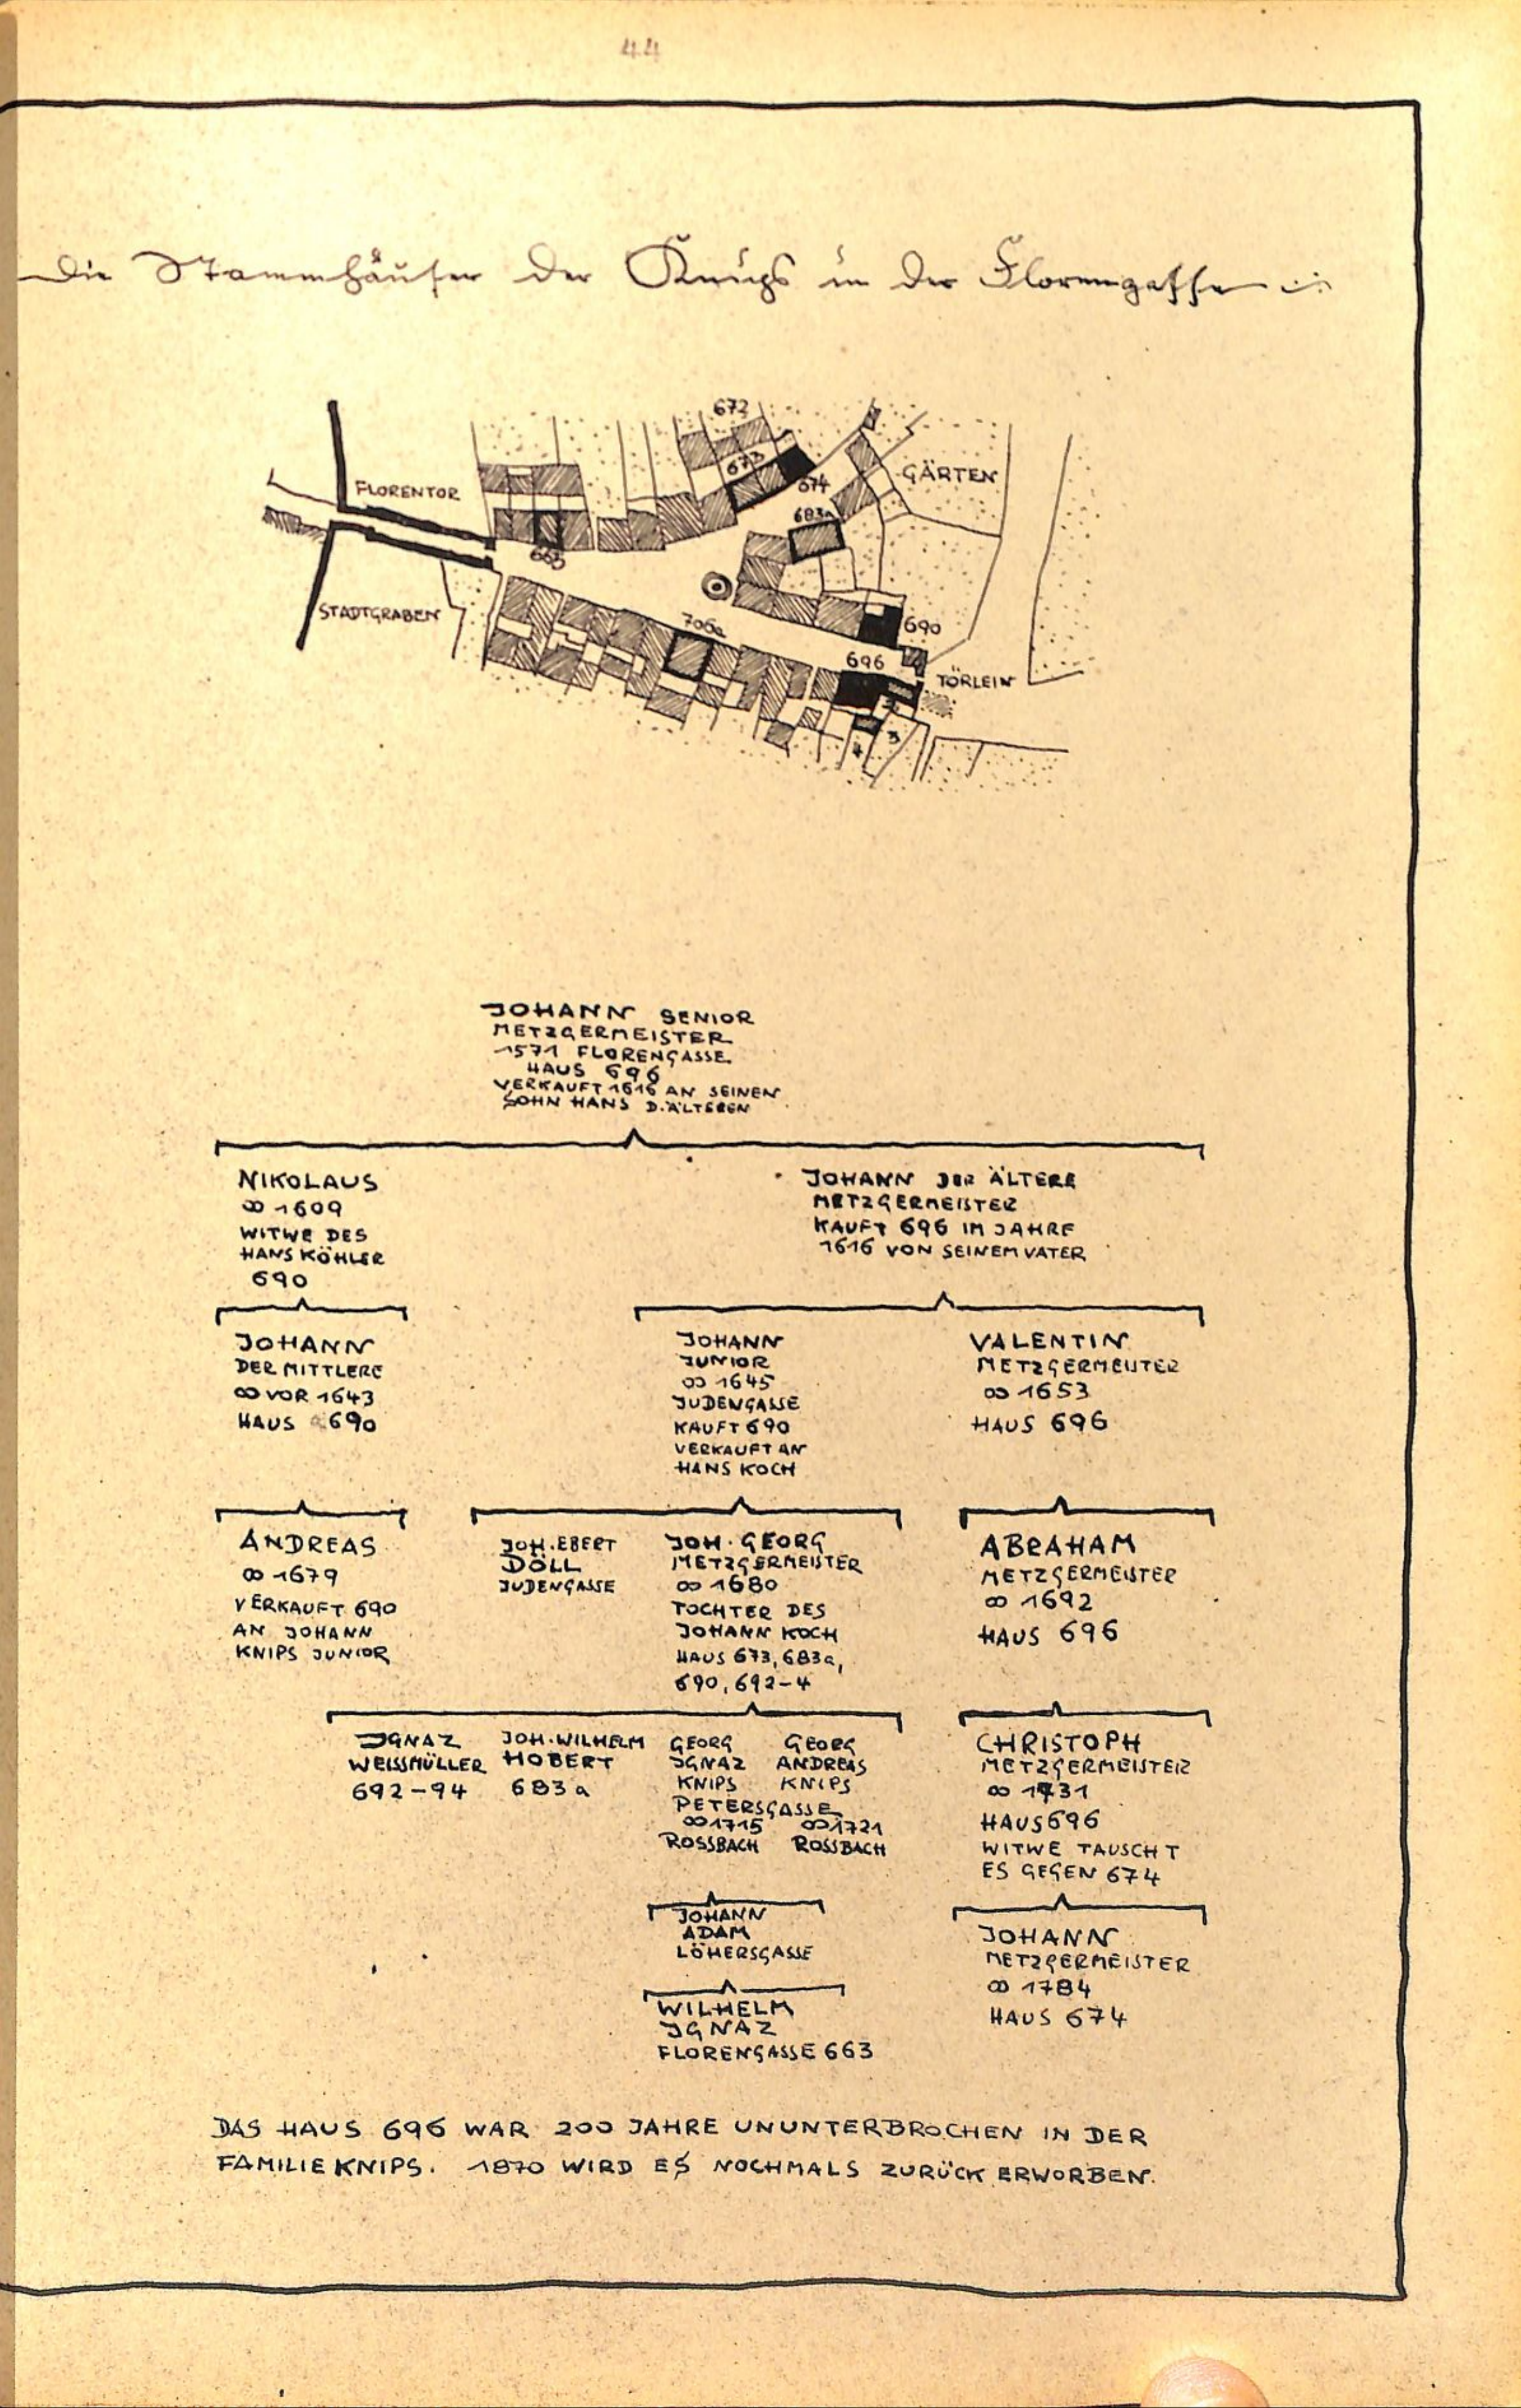 44
Die Stammhäuser der Knips in der Florengasse
672
673
674
GÄRTEN
FLORENTOR
683a
663
STADTGRABEN
706a
690
696
TÖRLEIN
3
JOHANN SENIOR
METZGERMEISTER
1571 FLORENGASSE
HAUS 696
VERKAUFT 1616 AN SEINEN
SOHN HANS D. ÄLTEREN
NIKOLAUS
∞ 1609
WITWE DES
HANS KÖHLER
690
JOHANN DER ÄLTERE
METZGERMEISTER
KAUFT 696 IM JAHRE
1616 VON SEINEM VATER
JOHANN
DER MITTLERE
∞ VOR 1643
HAUS 690
JOHANN
JUNIOR
∞ 1645
JUDENGASSE
KAUFT 690
VERKAUFT AN
HANS KOCH
VALENTIN
METZGERMEISTER
∞ 1653
HAUS 696
ANDREAS
∞ 1679
VERKAUFT 690
AN JOHANN
KNIPS JUNIOR
JOH. EBERT
DÖLL
JUDENGASSE
JOH. GEORG
METZGERMEISTER
∞ 1680
TOCHTER DES
JOHANN KOCH
HAUS 673, 683a,
690, 692-4
ABRAHAM
METZGERMEISTER
∞ 1692
HAUS 696
JGNAZ
WEISSMÜLLER
692-94
JOH. WILHELM
HOBERT
683a
GEORG GEORG
JGNAZ ANDREAS
KNIPS KNIPS
PETERSGASSE
∞ 1715 ∞ 1721
ROSSBACH ROSSBACH
CHRISTOPH
METZGERMEISTER
∞ 1731
HAUS 696
WITWE TAUSCHT
ES GEGEN 674
JOHANN
ADAM
LÖHERSGASSE
JOHANN
METZGERMEISTER
∞ 1784
HAUS 674
WILHELM
JGNAZ
FLORENGASSE 663
DAS HAUS 696 WAR 200 JAHRE UNUNTERBROCHEN IN DER
FAMILIE KNIPS. 1870 WIRD ES NOCHMALS ZURÜCK ERWORBEN.